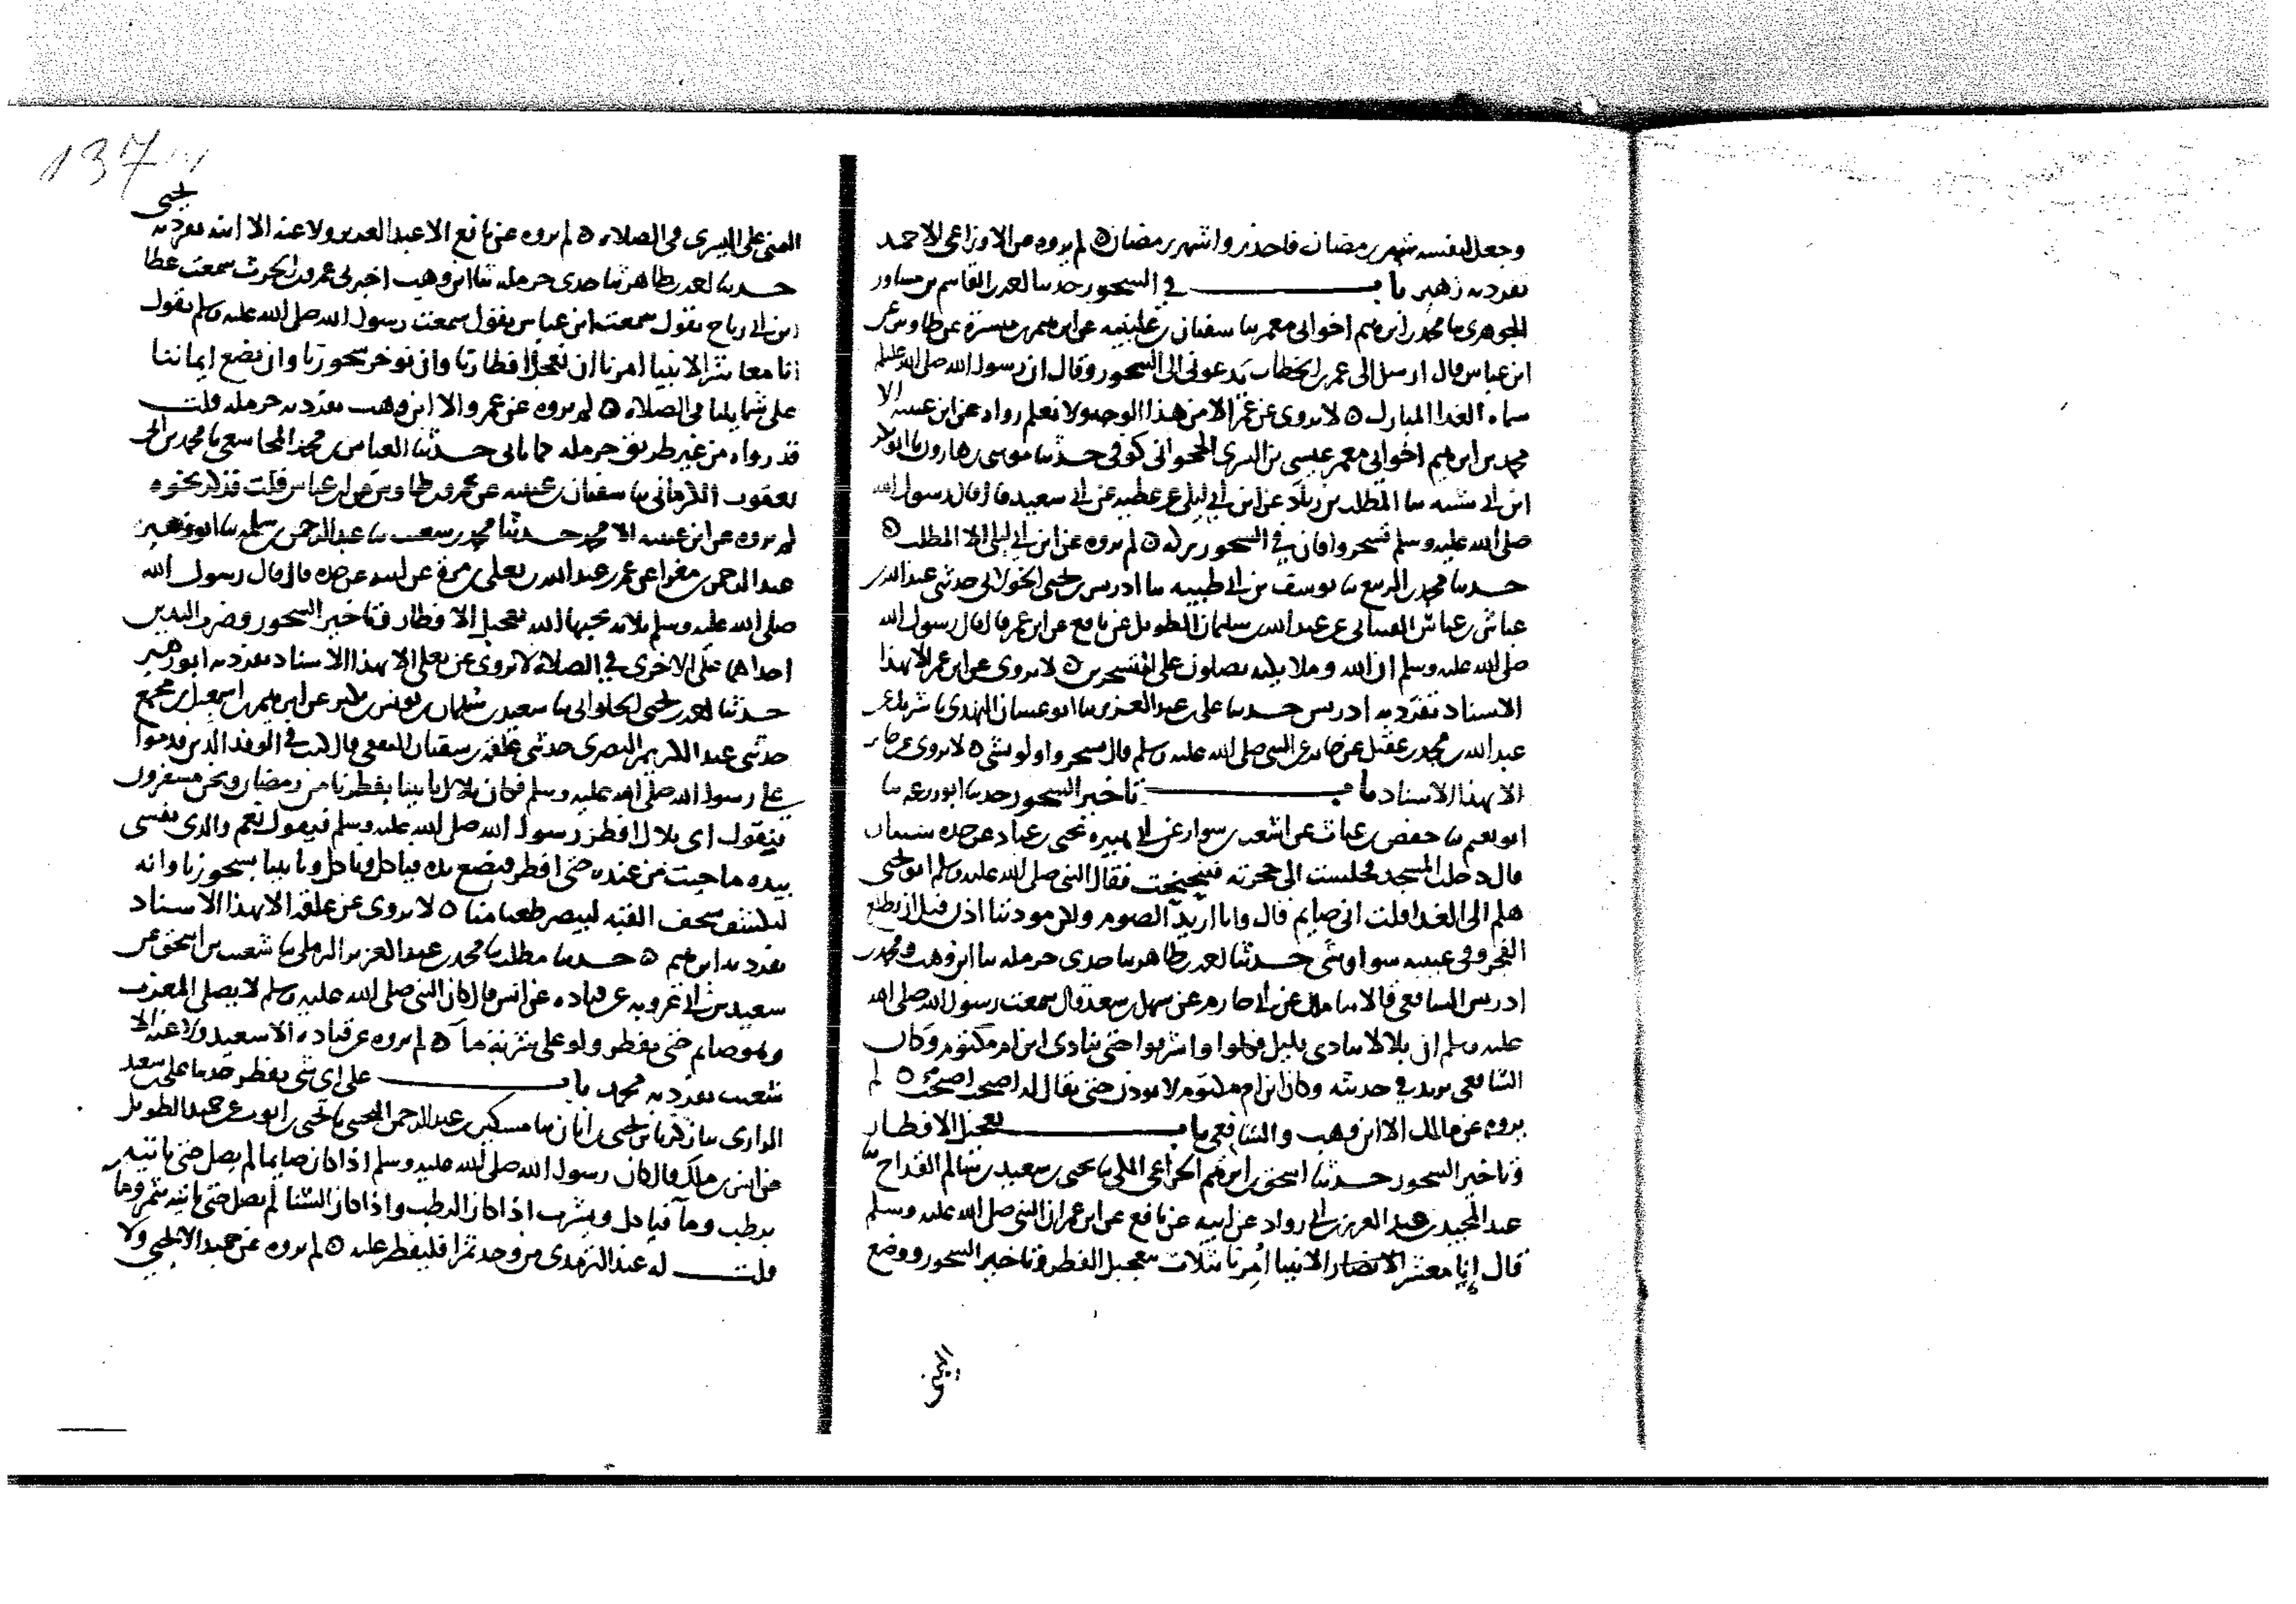 وجعل لنفسه شهر رمضان فاحذروا شهر رمضان ه لم يروه عن الاوزاعي الا احمد
تفرد به زهير باب في السحور حدثنا احمد بن القاسم بن مساور
الجوهري ثنا محمد بن ابرهيم اخو ابي معمر ثنا سفيان بن عيينه عن ابرهيم بن ميسرة عن طاوس عن
ابن عباس قال ارسل الي عمر بن الخطاب يدعوني الى السحور وقال ان رسول الله صلى الله عليه وسلم
سماه الغدا المبارك ه لا يروى عن عمر الا من هذا الوجه ولا نعلم رواه عن ابن عيينه الا
محمد بن ابرهيم اخو ابي معمر حدثنا موسى بن هارون ثنا ابو بكر
ابن ابي شيبه ثنا المطلب بن زياد عن ابن ابي ليلى عن عطيه عن ابي سعيد قال قال رسول الله
صلى الله عليه وسلم تسحروا فان في السحور بركه ه لم يروه عن ابن ابي ليلى الا المطلب ه
حدثنا محمد بن الربيع ثنا يوسف بن ابي طيبه ثنا ادريس بن يحيى الخولاني حدثني عبد الله بن
عياش بن عباس القتباني عن عبد الله بن سليمان الطويل عن نافع عن ابن عمر قال قال رسول الله
صلى الله عليه وسلم ان الله وملايكته يصلون على المتسحرين ه لا يروى عن ابن عمر الا بهذا
الاسناد تفرد به ادريس حدثنا علي بن عبد العزيز ثنا ابو غسان النهدي ثنا شريك عن
عبد الله بن محمد بن عقيل عن جابر عن النبي صلى الله عليه وسلم قال تسحروا ولو بشي ه لا يروى عن جابر
الا بهذا الاسناد باب تاخير السحور حدثنا ابو زرعه ثنا
ابو نعيم ثنا حفص بن غياث عن اشعث بن سوار عن ابي هبيرة يحيى بن عباد عن جده شيبان
قال دخلت المسجد فجلست الى حجرته فتنحنحت فقال النبي صلى الله عليه وسلم ابو يحيى
هلم الى الغدا قلت اني صايم قال وانا اريد الصوم ولكن موذننا اذن قبل ان يطلع
الفجر وفي عينيه سوا وشي حدثنا احمد بن طاهر ثنا جدي حرمله ثنا ابن وهب ومحمد بن
ادريس الشافعي قالا ثنا مالك عن ابي حازم عن سهل بن سعد قال سمعت رسول الله صلى الله
عليه وسلم ان بلالا ينادي بليل فكلوا واشربوا حتى ينادي ابن ام مكتوم وكان
الشافعي يزيد في حديثه وكان ابن ام مكتوم لا يوذن حتى يقال له اصبحت اصبحت ه لم
يروه عن مالك الا ابن وهب والشافعي باب تعجيل الافطار
وتاخير السحور حدثنا اسحق بن ابرهيم الخزاعي المكي ثنا يحيى بن سعيد بن سالم القداح ثنا
عبد المجيد بن عبد العزيز بن ابي رواد عن ابيه عن نافع عن ابن عمر ان النبي صلى الله عليه وسلم
قال انا معشر الانبيا امرنا بثلاث بتعجيل الفطر وتاخير السحور ووضع
اليمنى
137
يحيى
اليمنى على اليسرى في الصلاه ه لم يروه عن نافع الا عبد العزيز ولا عنه الا ابنه تفرد به
حدثنا احمد بن طاهر ثنا جدي حرمله ثنا ابن وهب اخبرني عمرو بن الحرث سمعت عطا
ابن ابي رباح يقول سمعت ابن عباس يقول سمعت رسول الله صلى الله عليه وسلم يقول
انا معاشر الانبيا امرنا ان نعجل افطارنا وان نوخر سحورنا وان نضع ايماننا
على شمايلنا في الصلاه ه لم يروه عن عمرو الا ابن وهب تفرد به حرمله قلت
قد رواه من غير طريق حرمله كما ياتي حدثنا العباس بن محمد المجاشعي ثنا محمد بن ابي
يعقوب الكرماني ثنا سفيان بن عيينه عن عمرو عن طاوس عن ابن عباس قلت فذكر نحوه
لم يروه عن ابن عيينه الا محمد حدثنا محمد بن شعيب ثنا عبد الرحمن بن سلمه ثنا ابو زهير
عبد الرحمن بن مغرا عن عمر بن عبد الله بن يعلى بن مرة عن ابيه عن جده قال قال رسول الله
صلى الله عليه وسلم ثلاثه يحبها الله تعجيل الافطار وتاخير السحور وضرب اليدين
احداهما على الاخرى في الصلاه لا يروى عن يعلى الا بهذا الاسناد تفرد به ابو زهير
حدثنا احمد بن يحيى الحلواني ثنا سعيد بن سليمان بن يونس بن بكير عن ابرهيم بن اسمعيل بن مجمع
حدثني عبد الكريم البصري حدثني علقمه بن سفيان الثقفي قال كنت في الوفد الذين قدموا
على رسول الله صلى الله عليه وسلم فكان بلال ياتينا بفطرنا من رمضان ونحن مسفرون
فيقول اي بلال افطر رسول الله صلى الله عليه وسلم فيقول نعم والذي نفسي
بيده ما جيت من عنده حتى افطر فيضع يده فياكل وناكل وياتينا بسحورنا وانه
ليكشف سجف القبه ليبصر طعامنا ه لا يروى عن علقمه الا بهذا الاسناد
تفرد به ابرهيم ه حدثنا مطلب ثنا محمد بن عبد العزيز الرملي ثنا شعيب بن اسحق عن
سعيد بن ابي عروبه عن قتاده عن انس قال كان النبي صلى الله عليه وسلم لا يصلي المغرب
وهو صايم حتى يفطر ولو على شربة مآ ه لم يروه عن قتاده الا سعيد ولا عنه الا
شعيب تفرد به محمد باب على اي شي يفطر حدثنا علي بن سعيد
الرازي ثنا زكريا بن يحيى بن ابان ثنا مسكين بن عبد الرحمن التجيبي ثنا يحيى بن ايوب عن حميد الطويل
عن انس بن ملك قال كان رسول الله صلى الله عليه وسلم اذا كان صايما لم يصل حتى ناتيه
برطب وما فياكل ويشرب اذا كان الرطب واذا كان الشتا لم يصل حتى ناتيه بتمر وما
قلت له عند الترمذي من وجد تمرا فليفطر عليه ه لم يروه عن حميد الا يحيى ولا